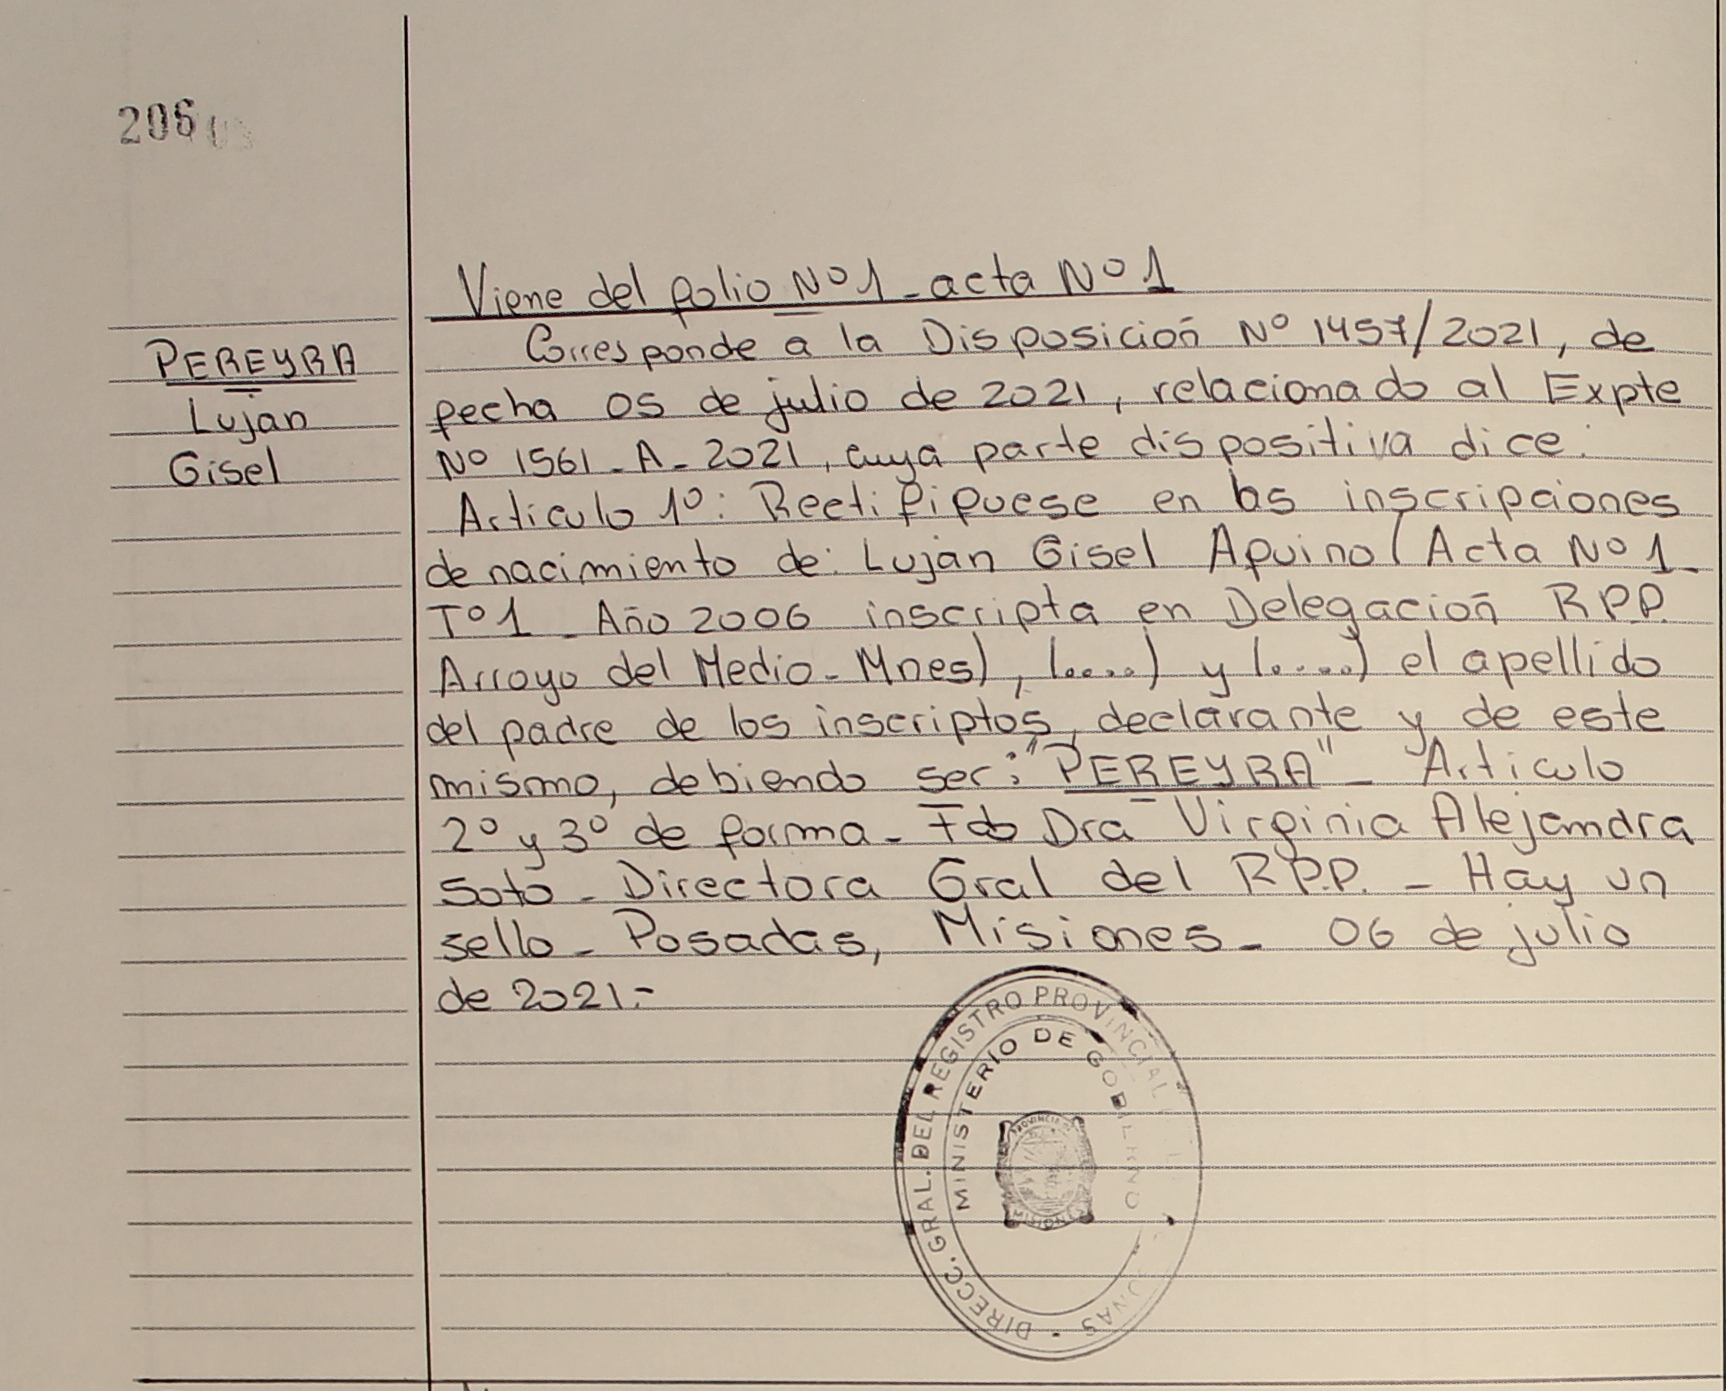 206
Viene del folio Nº 1 - acta Nº 1
PEREYRA
Lujan
Gisel
Corresponde a la Disposición Nº 1457/2021, de
fecha 05 de julio de 2021, relacionado al Expte
Nº 1561 - A - 2021, cuya parte dispositiva dice:
Articulo 1º: Rectifiquese en las inscripciones
de nacimiento de: Lujan Gisel Aquino (Acta Nº 1 -
Tº 1 - Año 2006 inscripta en Delegación R.P.P.
Arroyo del Medio - Mnes), (.....) y (.....) el apellido
del padre de los inscriptos, declarante y de este
mismo, debiendo ser: "PEREYRA" - Articulo
2º y 3º de forma - Fdo Dra Virginia Alejandra
Soto - Directora Gral del R.P.P. - Hay un
sello - Posadas, Misiones - 06 de julio
de 2021.-
DIRECC. GRAL. DEL REGISTRO PROVINCIAL
MINISTERIO DE GOBIERNO
PROVINCIA DE
MISIONES